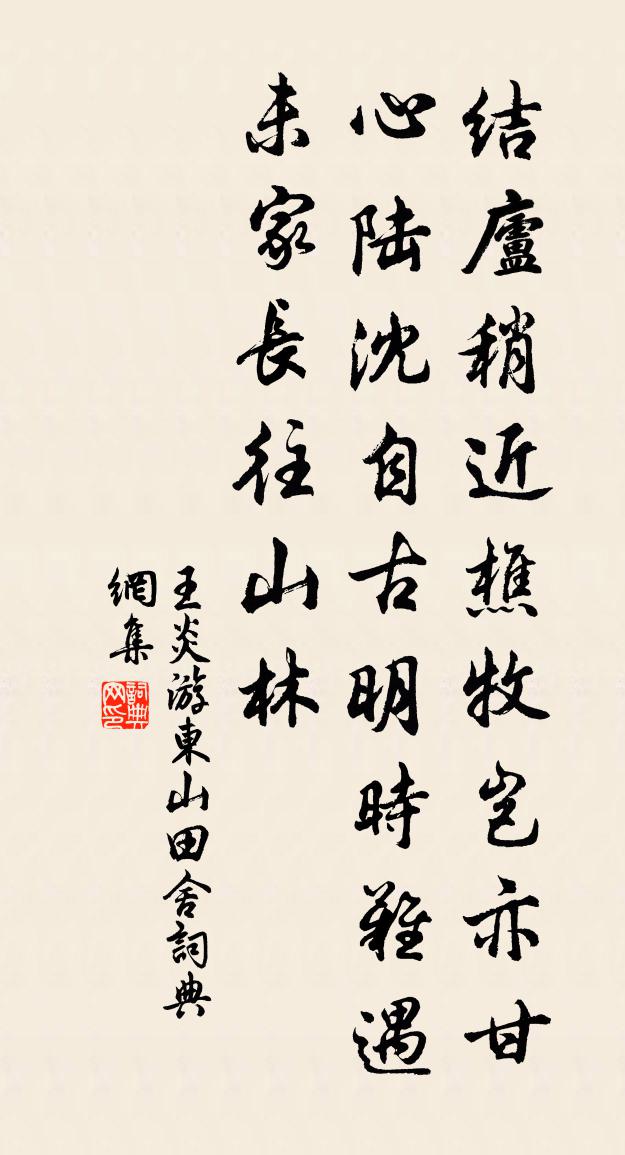 结廬稍近樵牧岂亦甘
心陆沈自古明時難遇
未家長往山林
王炎游東山田舍詞典
網集
詞典网印